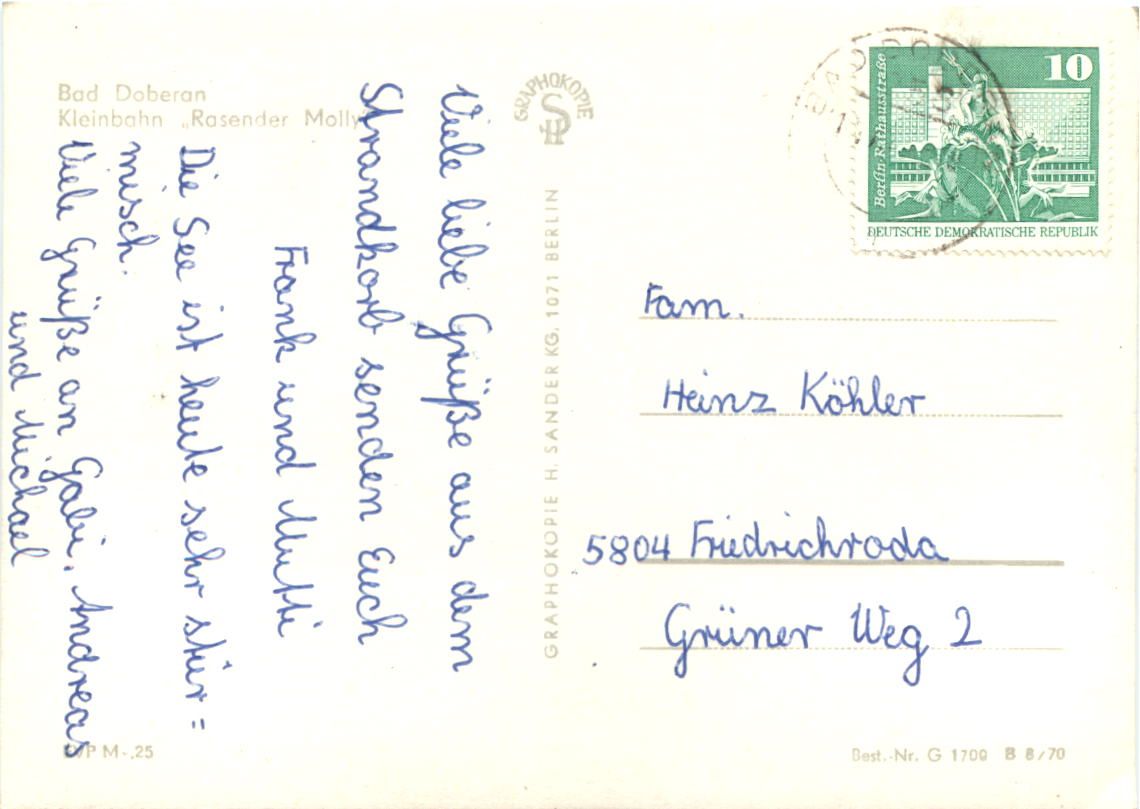 Bad Doberan
Kleinbahn „Rasender Molly
Viele liebe Grüße aus dem
Strandkorb senden Euch
Frank und Mutti
Die See ist heute sehr stür=
misch.
Viele Grüße an Gabi, Andreas
und Michael
GRAPHOKOPIE
GRAPHOKOPIE H. SANDER KG. 1071 BERLIN
10
Berlin-Rathausstraße
DEUTSCHE DEMOKRATISCHE REPUBLIK
Fam.
Heinz Köhler
5804 Friedrichroda
Grüner Weg 2
M-,25
Best.-Nr. G 1709 B 8/70